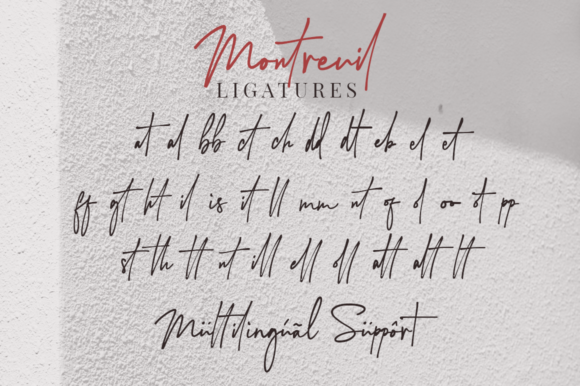 Montreuil
LIGATURES
at al bb ct ch dd dt eb el et
ff gt ht il is it ll mm nt of ol oo ot pp
st th tt nt ill ell oll att alt lt
Mültilingúãl Süppôrt